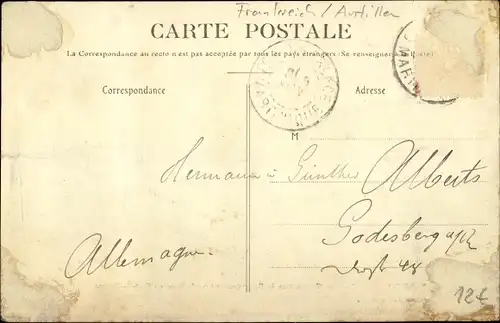 Frankreich / Antillen
CARTE POSTALE
La Correspondance au recto n'est pas acceptée par tous les pays étrangers (Se renseigner à la Poste)
Correspondance
Adresse
MARTINIQUE
MARTI
M
Hermann u Günther Alberts
Godesberg a/Rh
Allemagne.
48
12€